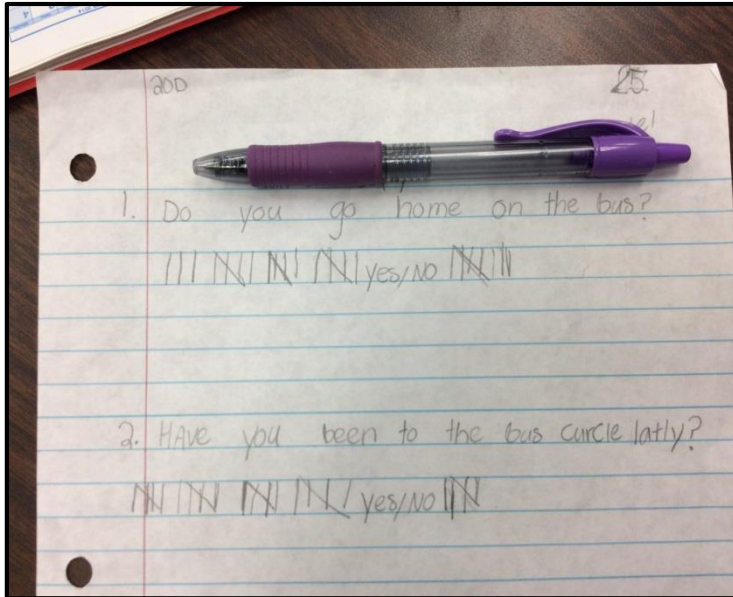 200 25.
1. Do you go home on the bus?
yes/NO
2. HAve you been to the bus curcle latly?
yes/NO